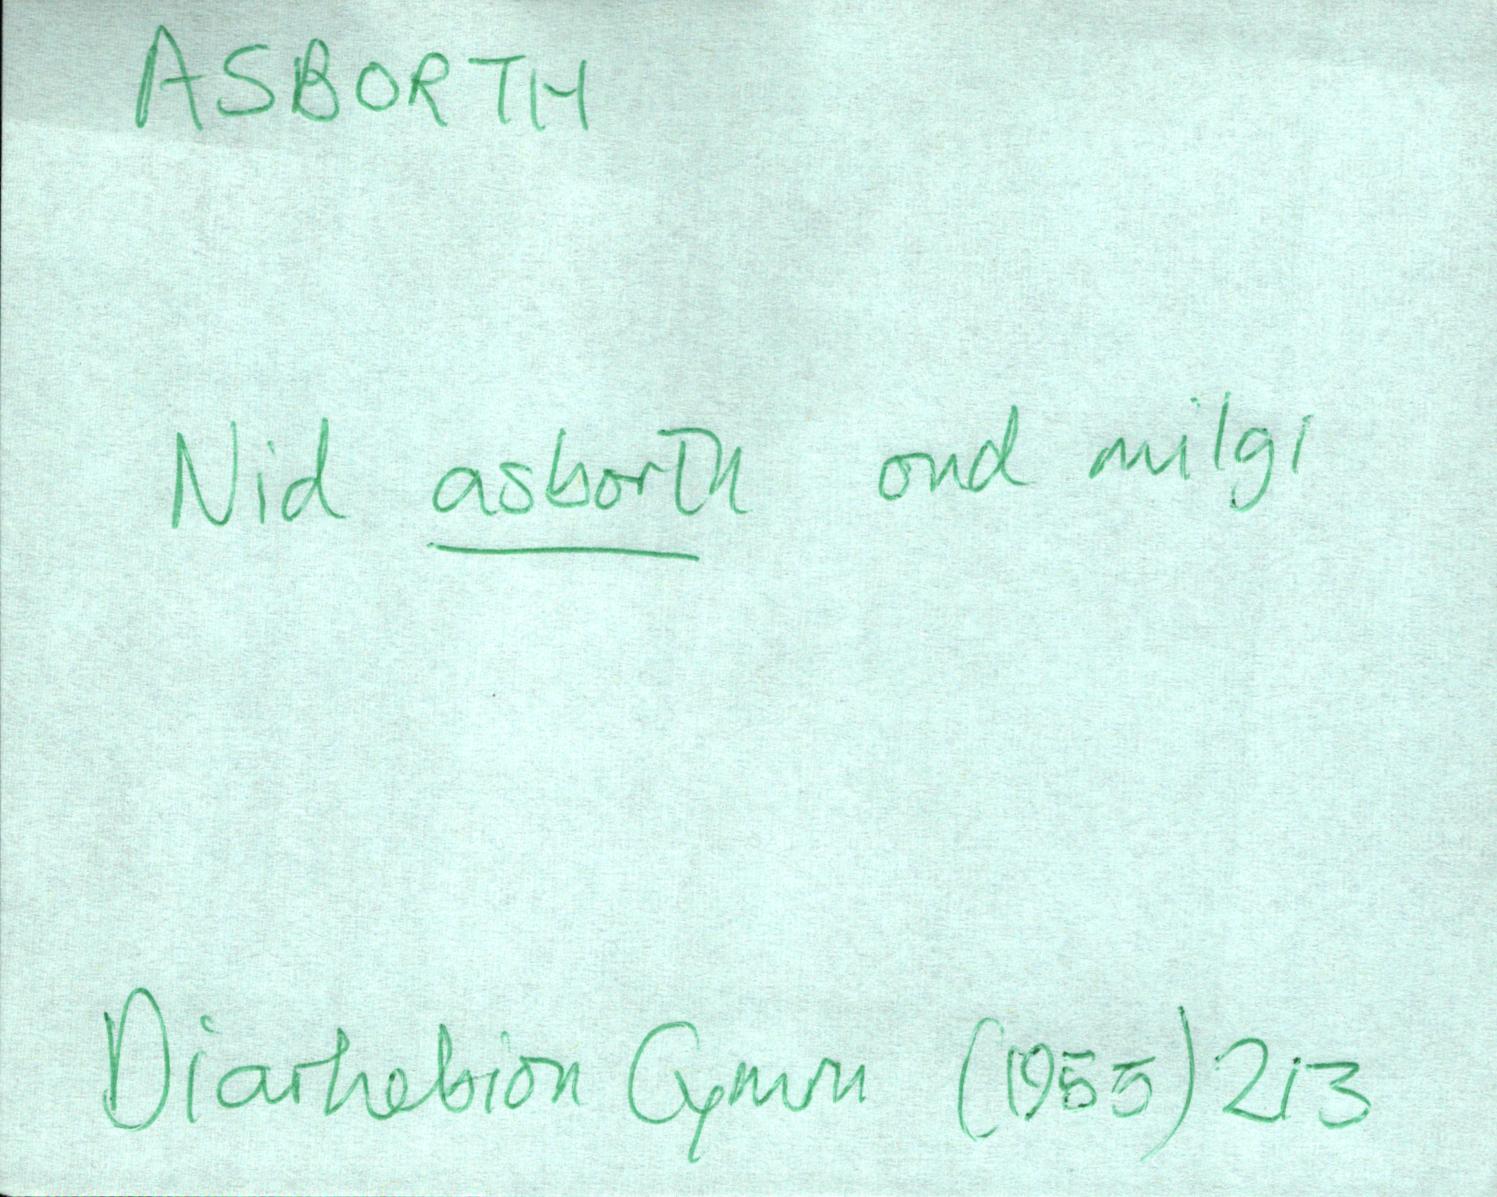 ASBORTH
Nid asborth ond milgi
Diarhebion Cymru (1955) 213